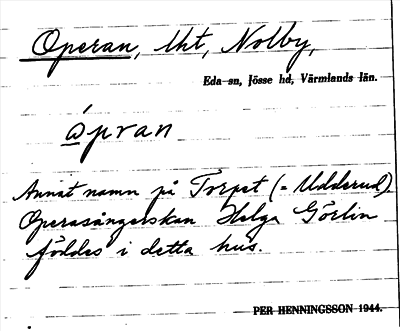 Operan, lht, Nolby,
Eda sn, Jösse hd, Värmlands län.
ápran
Annat namn på Torpet (= Udderud)
Operasångerskan Helga Görlin
föddes i detta hus.
PER HENNINGSSON 1944.